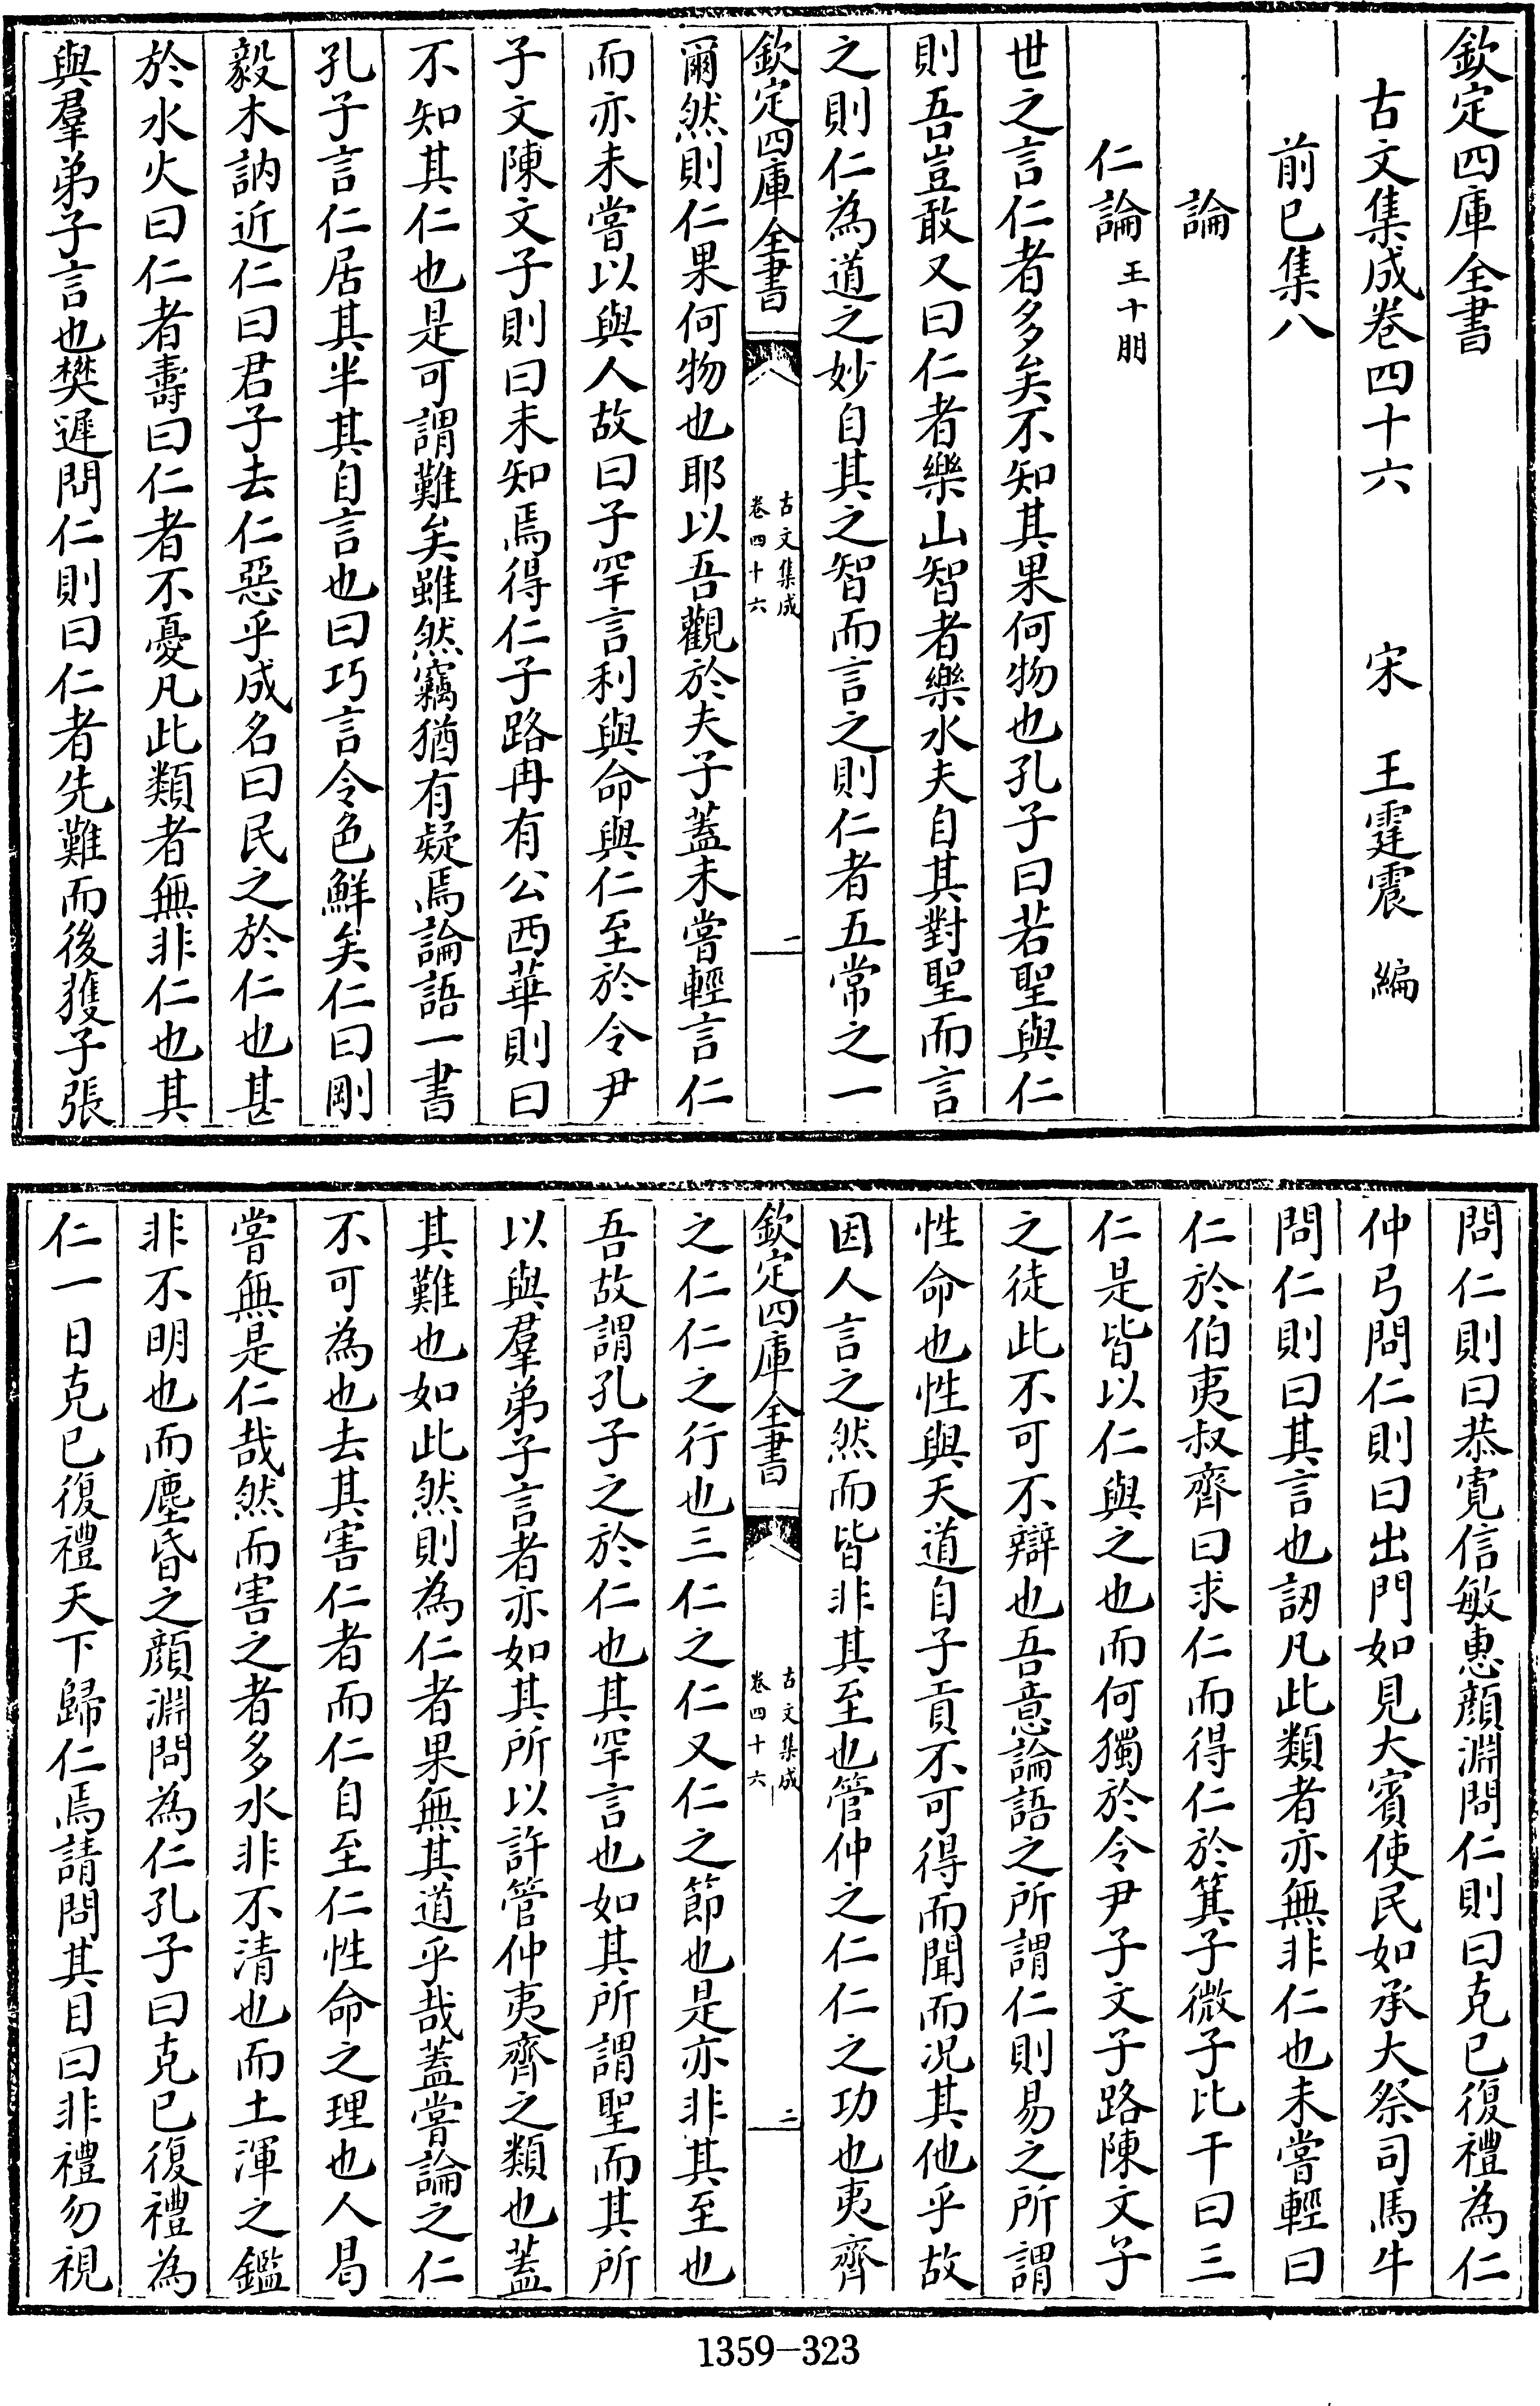 欽定四庫全書
古文集成卷四十六　宋　王霆震　編
前已集八
論
仁論　王十朋
世之言仁者多矣不知其果何物也孔子曰若聖與仁
則吾豈敢又曰仁者樂山智者樂水夫自其對聖而言
之則仁為道之妙自其之智而言之則仁者五常之一
欽定四庫全書
古文集成
卷四十六
一
爾然則仁果何物也耶以吾觀於夫子蓋未嘗輕言仁
而亦未嘗以與人故曰子罕言利與命與仁至於令尹
子文陳文子則曰未知焉得仁子路冉有公西華則曰
不知其仁也是可謂難矣雖然竊猶有疑焉論語一書
孔子言仁居其半其自言也曰巧言令色鮮矣仁曰剛
毅木訥近仁曰君子去仁惡乎成名曰民之於仁也甚
於水火曰仁者壽曰仁者不憂凡此類者無非仁也其
與羣弟子言也樊遲問仁則曰仁者先難而後獲子張
問仁則曰恭寛信敏惠顔淵問仁則曰克已復禮為仁
仲弓問仁則曰出門如見大賓使民如承大祭司馬牛
問仁則曰其言也訒凡此類者亦無非仁也未嘗輕曰
仁於伯夷叔齊曰求仁而得仁於箕子微子比干曰三
仁是皆以仁與之也而何獨於令尹子文子路陳文子
之徒此不可不辯也吾意論語之所謂仁則易之所謂
性命也性與天道自子貢不可得而聞而况其他乎故
因人言之然而皆非其至也管仲之仁仁之功也夷齊
欽定四庫全書
古文集成
卷四十六
二
之仁仁之行也三仁之仁又仁之節也是亦非其至也
吾故謂孔子之於仁也其罕言也如其所謂聖而其所
以與羣弟子言者亦如其所以許管仲夷齊之類也蓋
其難也如此然則為仁者果無其道乎哉蓋嘗論之仁
不可為也去其害仁者而仁自至仁性命之理也人曷
嘗無是仁哉然而害之者多水非不清也而土渾之鑑
非不明也而塵昏之顔淵問為仁孔子曰克已復禮為
仁一日克已復禮天下歸仁焉請問其目曰非禮勿視
1359-323